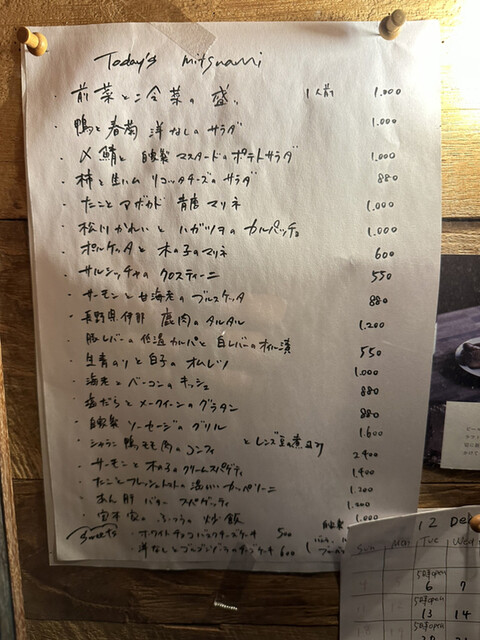 Today's mitsunami
・前菜と二冷菜の盛り 1人前 1.000
・鴨と春菊 洋なしのサラダ 1.000
・〆鯖と自家製マスタードのポテトサラダ 1.000
・柿と生ハム リコッタチーズのサラダ 880
・たことアボカド 青唐マリネ 1.000
・松川かれいとハガツオのカルパッチョ 1.000
・ポルケッタと木の子のマリネ 600
・サルシッチャのクロスティーニ 550
・サーモンと甘海老のブルスケッタ 880
・長野県伊那 鹿肉のタルタル 1.200
・豚レバーの低温カルパと白レバーのオイル漬 550
・生青のりと白子のオムレツ 1.000
・海老とベーコンのキッシュ 880
・塩だらとメークイーンのグラタン 880
・自家製ソーセージのグリル 1.600
・シャラン鴨モモ肉のコンフィ とレンズ豆の煮込み 2.400
・サーモンと木の子のクリームスパゲティ 1.400
・たことフレッシュトマトの温いカッペリーニ 1.200
・あん肝バタースパゲッティ
・宮本家のふつうの炒飯 1.000
Sweets ・ホワイトチョコバスクチーズケーキ 500
・洋なしとゴルゴンゾーラのチーズケーキ 600
自家製
12 De
Sun Mon Tue Wed
5時open
6 7
5時open
13 14
5時open